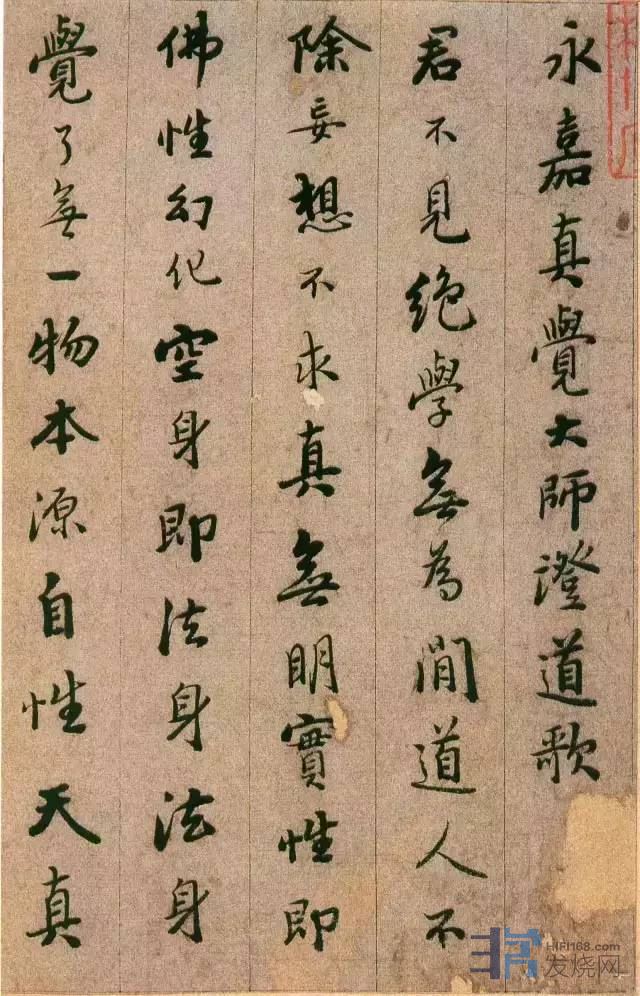 永嘉真覺大師澄道歌
君不見絶學無為閒道人不
除妄想不求真無明實性即
佛性幻化空身即法身法身
覺了無一物本源自性天真
HIFI168.com
发烧网